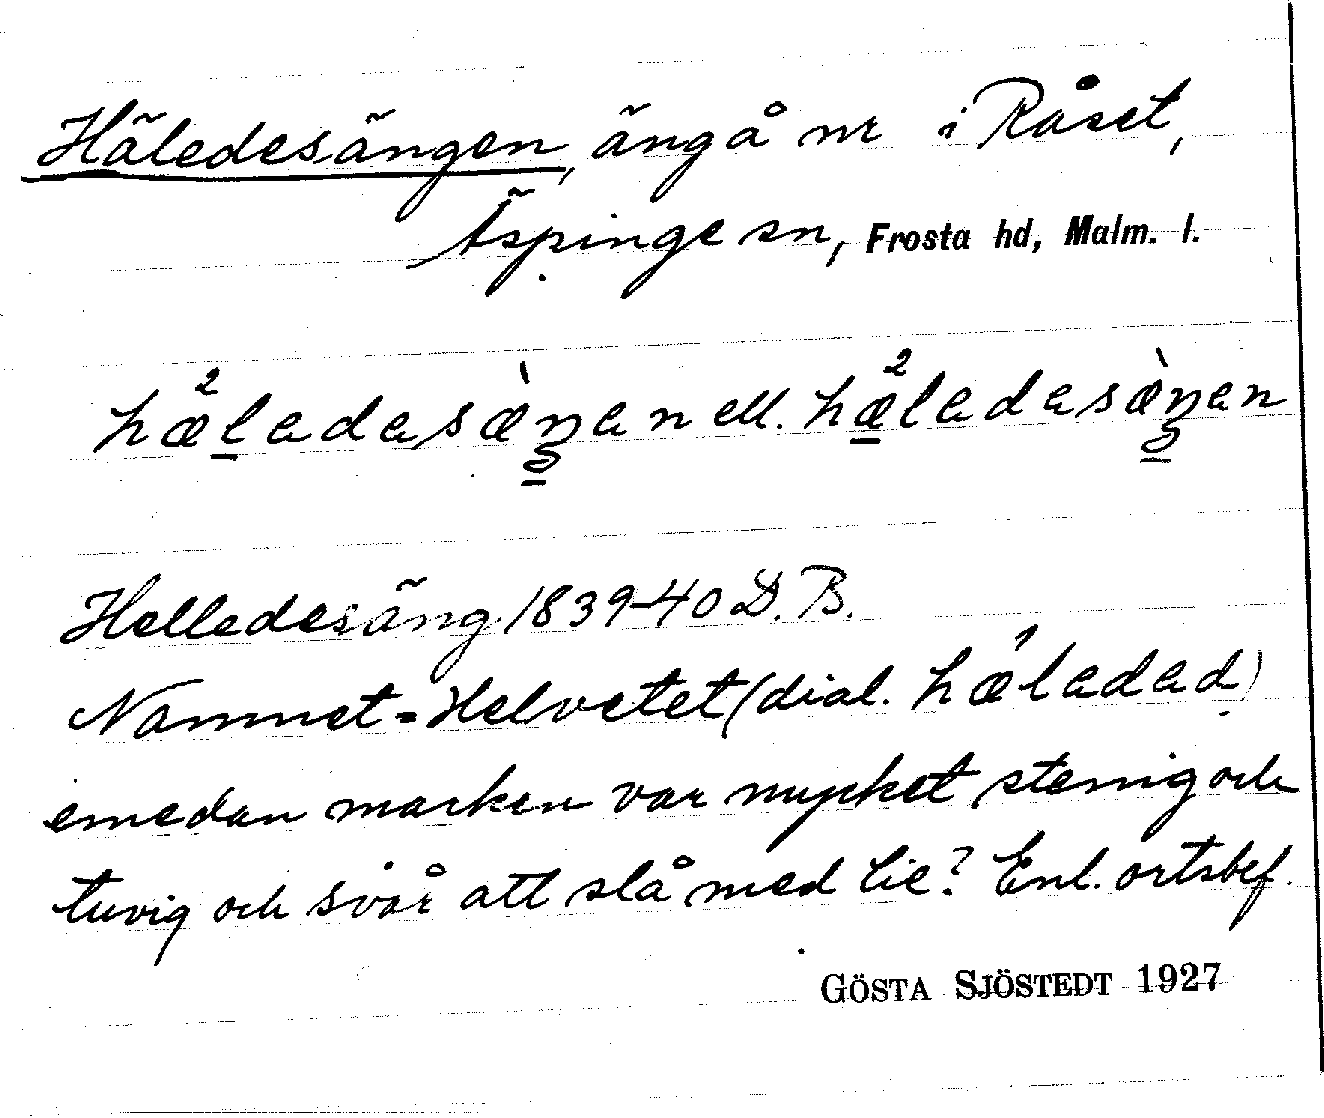 Häledesängen, äng å nr i Råset,
Äspinge sn, Frosta hd, Malm. l.
hæ²ledesæ̀ŋen ell. hæ²ledesæ̀ŋen
Helledesäng 1839-40 D.B.
Namnet = Helvetet (dial. hǽleded)
emedan marken var mycket stenig och
tuvig och svår att slå med lie? Enl. ortsbef.
GÖSTA SJÖSTEDT 1927